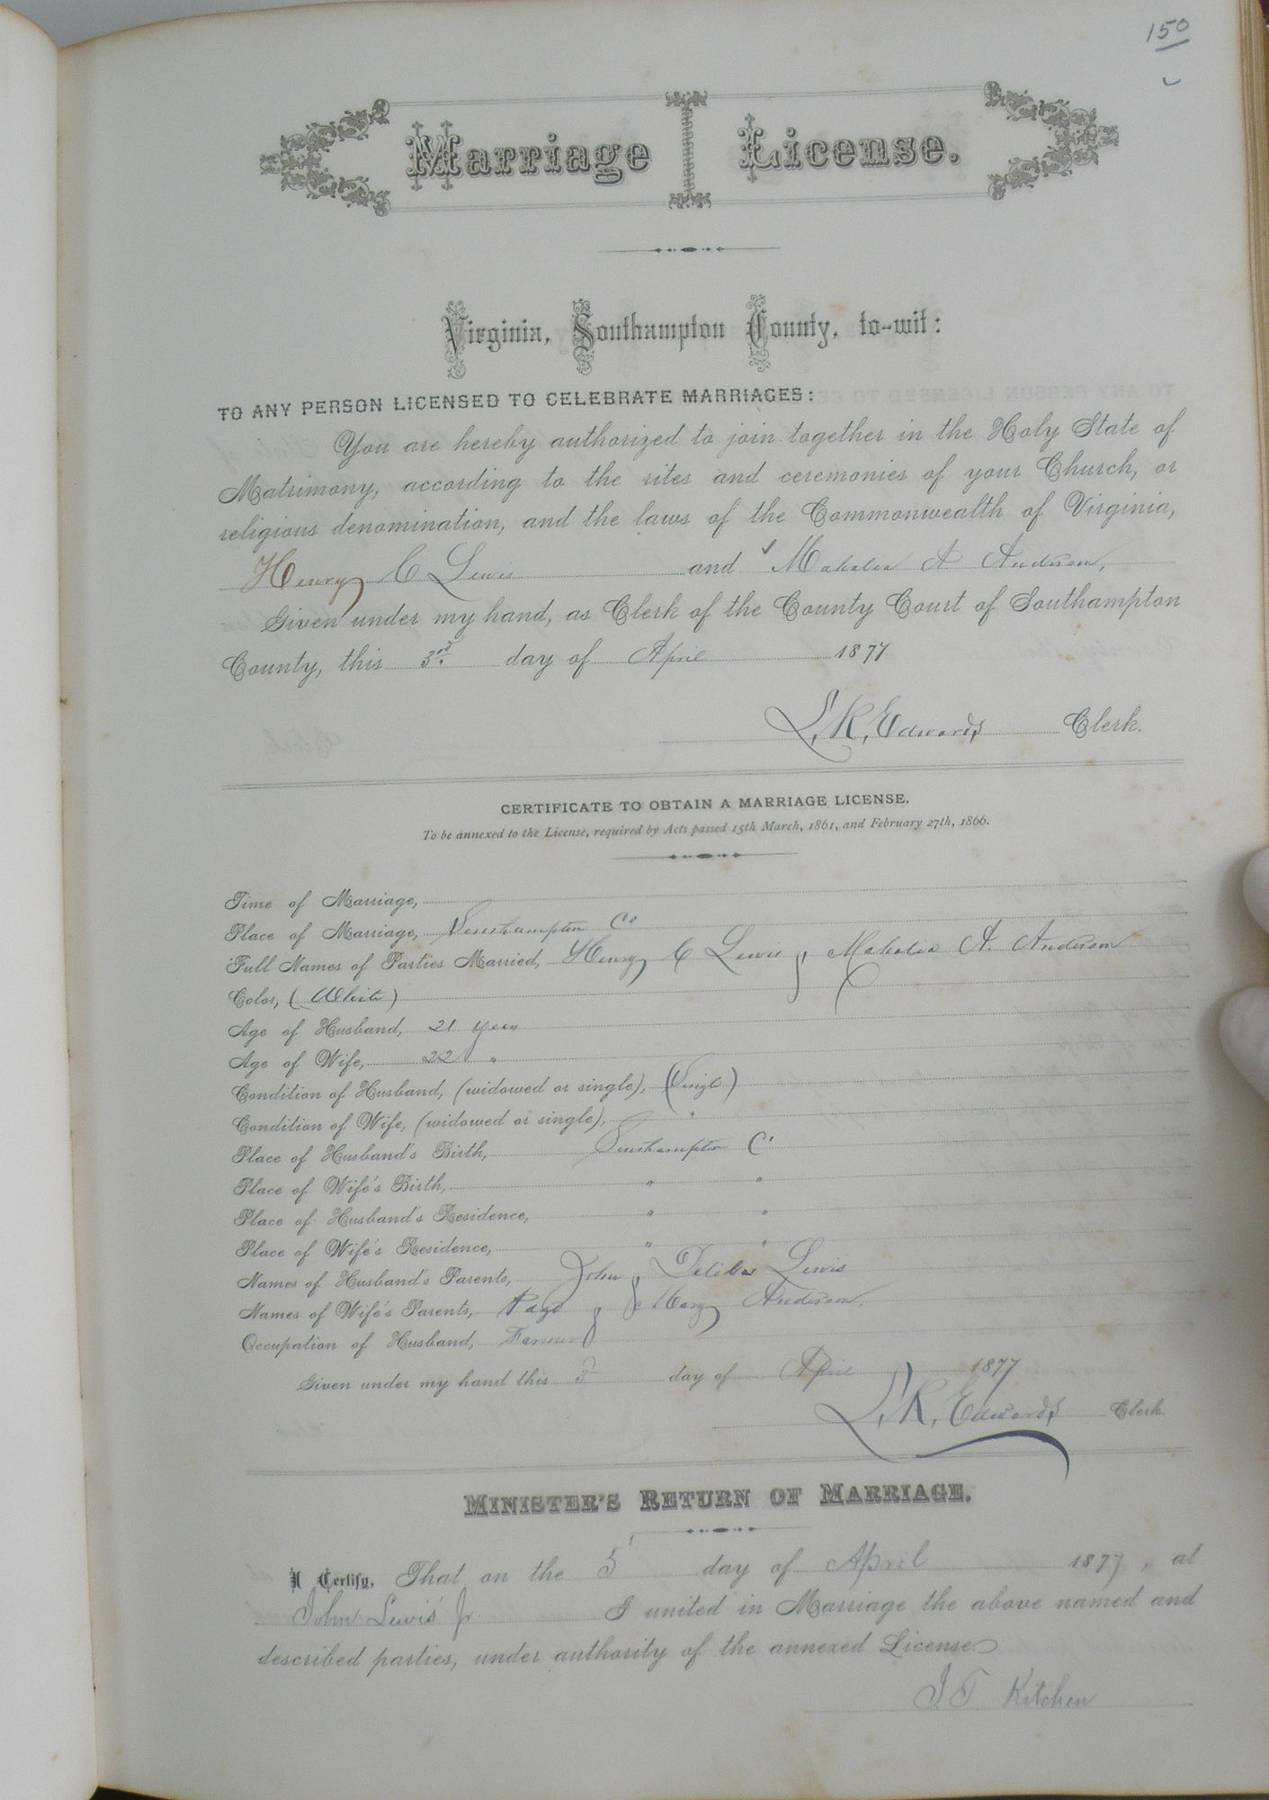 150
Marriage License.
Virginia, Southampton County, to-wit:
TO ANY PERSON LICENSED TO CELEBRATE MARRIAGES:
You are hereby authorized to join together in the Holy State of
Matrimony, according to the rites and ceremonies of your Church, or
religious denomination, and the laws of the Commonwealth of Virginia,
Henry C Lewis and Mahalia A Anderson,
Given under my hand, as Clerk of the County Court of Southampton
County, this 3rd day of April 1877
L. R. Edwards Clerk.
CERTIFICATE TO OBTAIN A MARRIAGE LICENSE.
To be annexed to the License, required by Acts passed 15th March, 1861, and February 27th, 1866.
Time of Marriage,
Place of Marriage, Southampton Co
Full Names of Parties Married, Henry C Lewis & Mahalia A. Anderson
Color, (White)
Age of Husband, 21 years
Age of Wife, 22 "
Condition of Husband, (widowed or single), (Single)
Condition of Wife, (widowed or single), "
Place of Husband's Birth, Southampton Co
Place of Wife's Birth, " "
Place of Husband's Residence, " "
Place of Wife's Residence, " "
Names of Husband's Parents, John & Lewis
Names of Wife's Parents, & Mary Anderson.
Occupation of Husband, Farmer
Given under my hand this 3 day of April 1877
L. R. Edwards Clerk.
MINISTER'S RETURN OF MARRIAGE.
I Certify, That on the 5 day of April 1877, at
John Lewis Jr I united in Marriage the above named and
described parties, under authority of the annexed License
J. T Kitchen